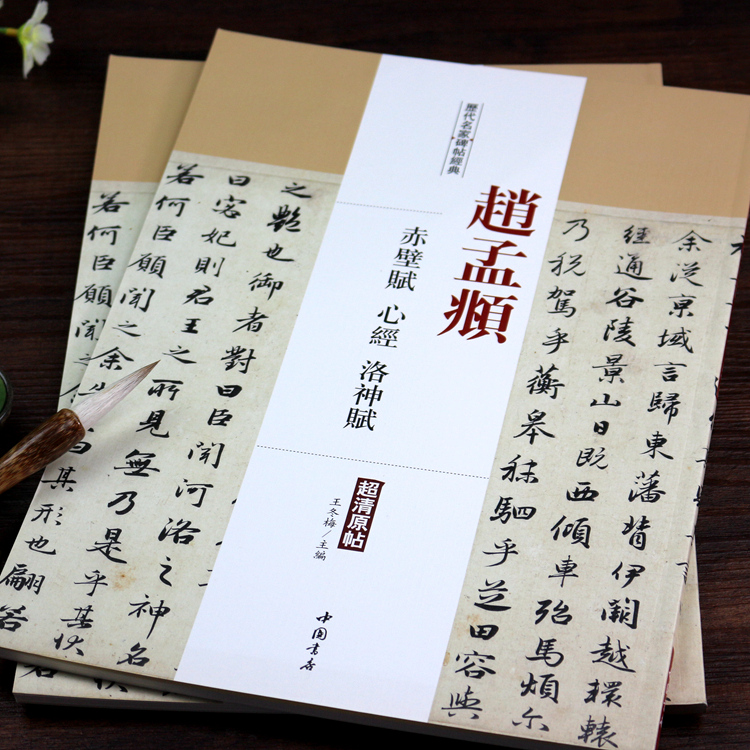 歷代名家碑帖經典
趙孟頫
赤壁賦 心經 洛神賦
超清原帖
王冬梅/主編
中國書店
余從京域言歸東藩背伊闕越轘轅
經通谷陵景山日既西傾車殆馬煩尔
乃稅駕乎蘅皋秣駟乎芝田容與
之豔也御者對曰臣聞河洛之神名
曰宓妃則君王之所見無乃是乎其狀
若何臣願聞之余告曰其形也翩若
若何臣願聞之